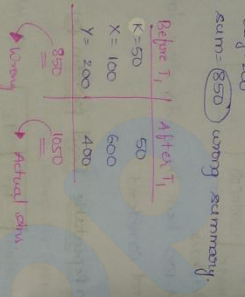 200
sum = 850 wrong summary.
Before T₁ After T₁
K = 50 50
X = 100 600
Y = 200 400
850 1050
Wrong Actual ans.